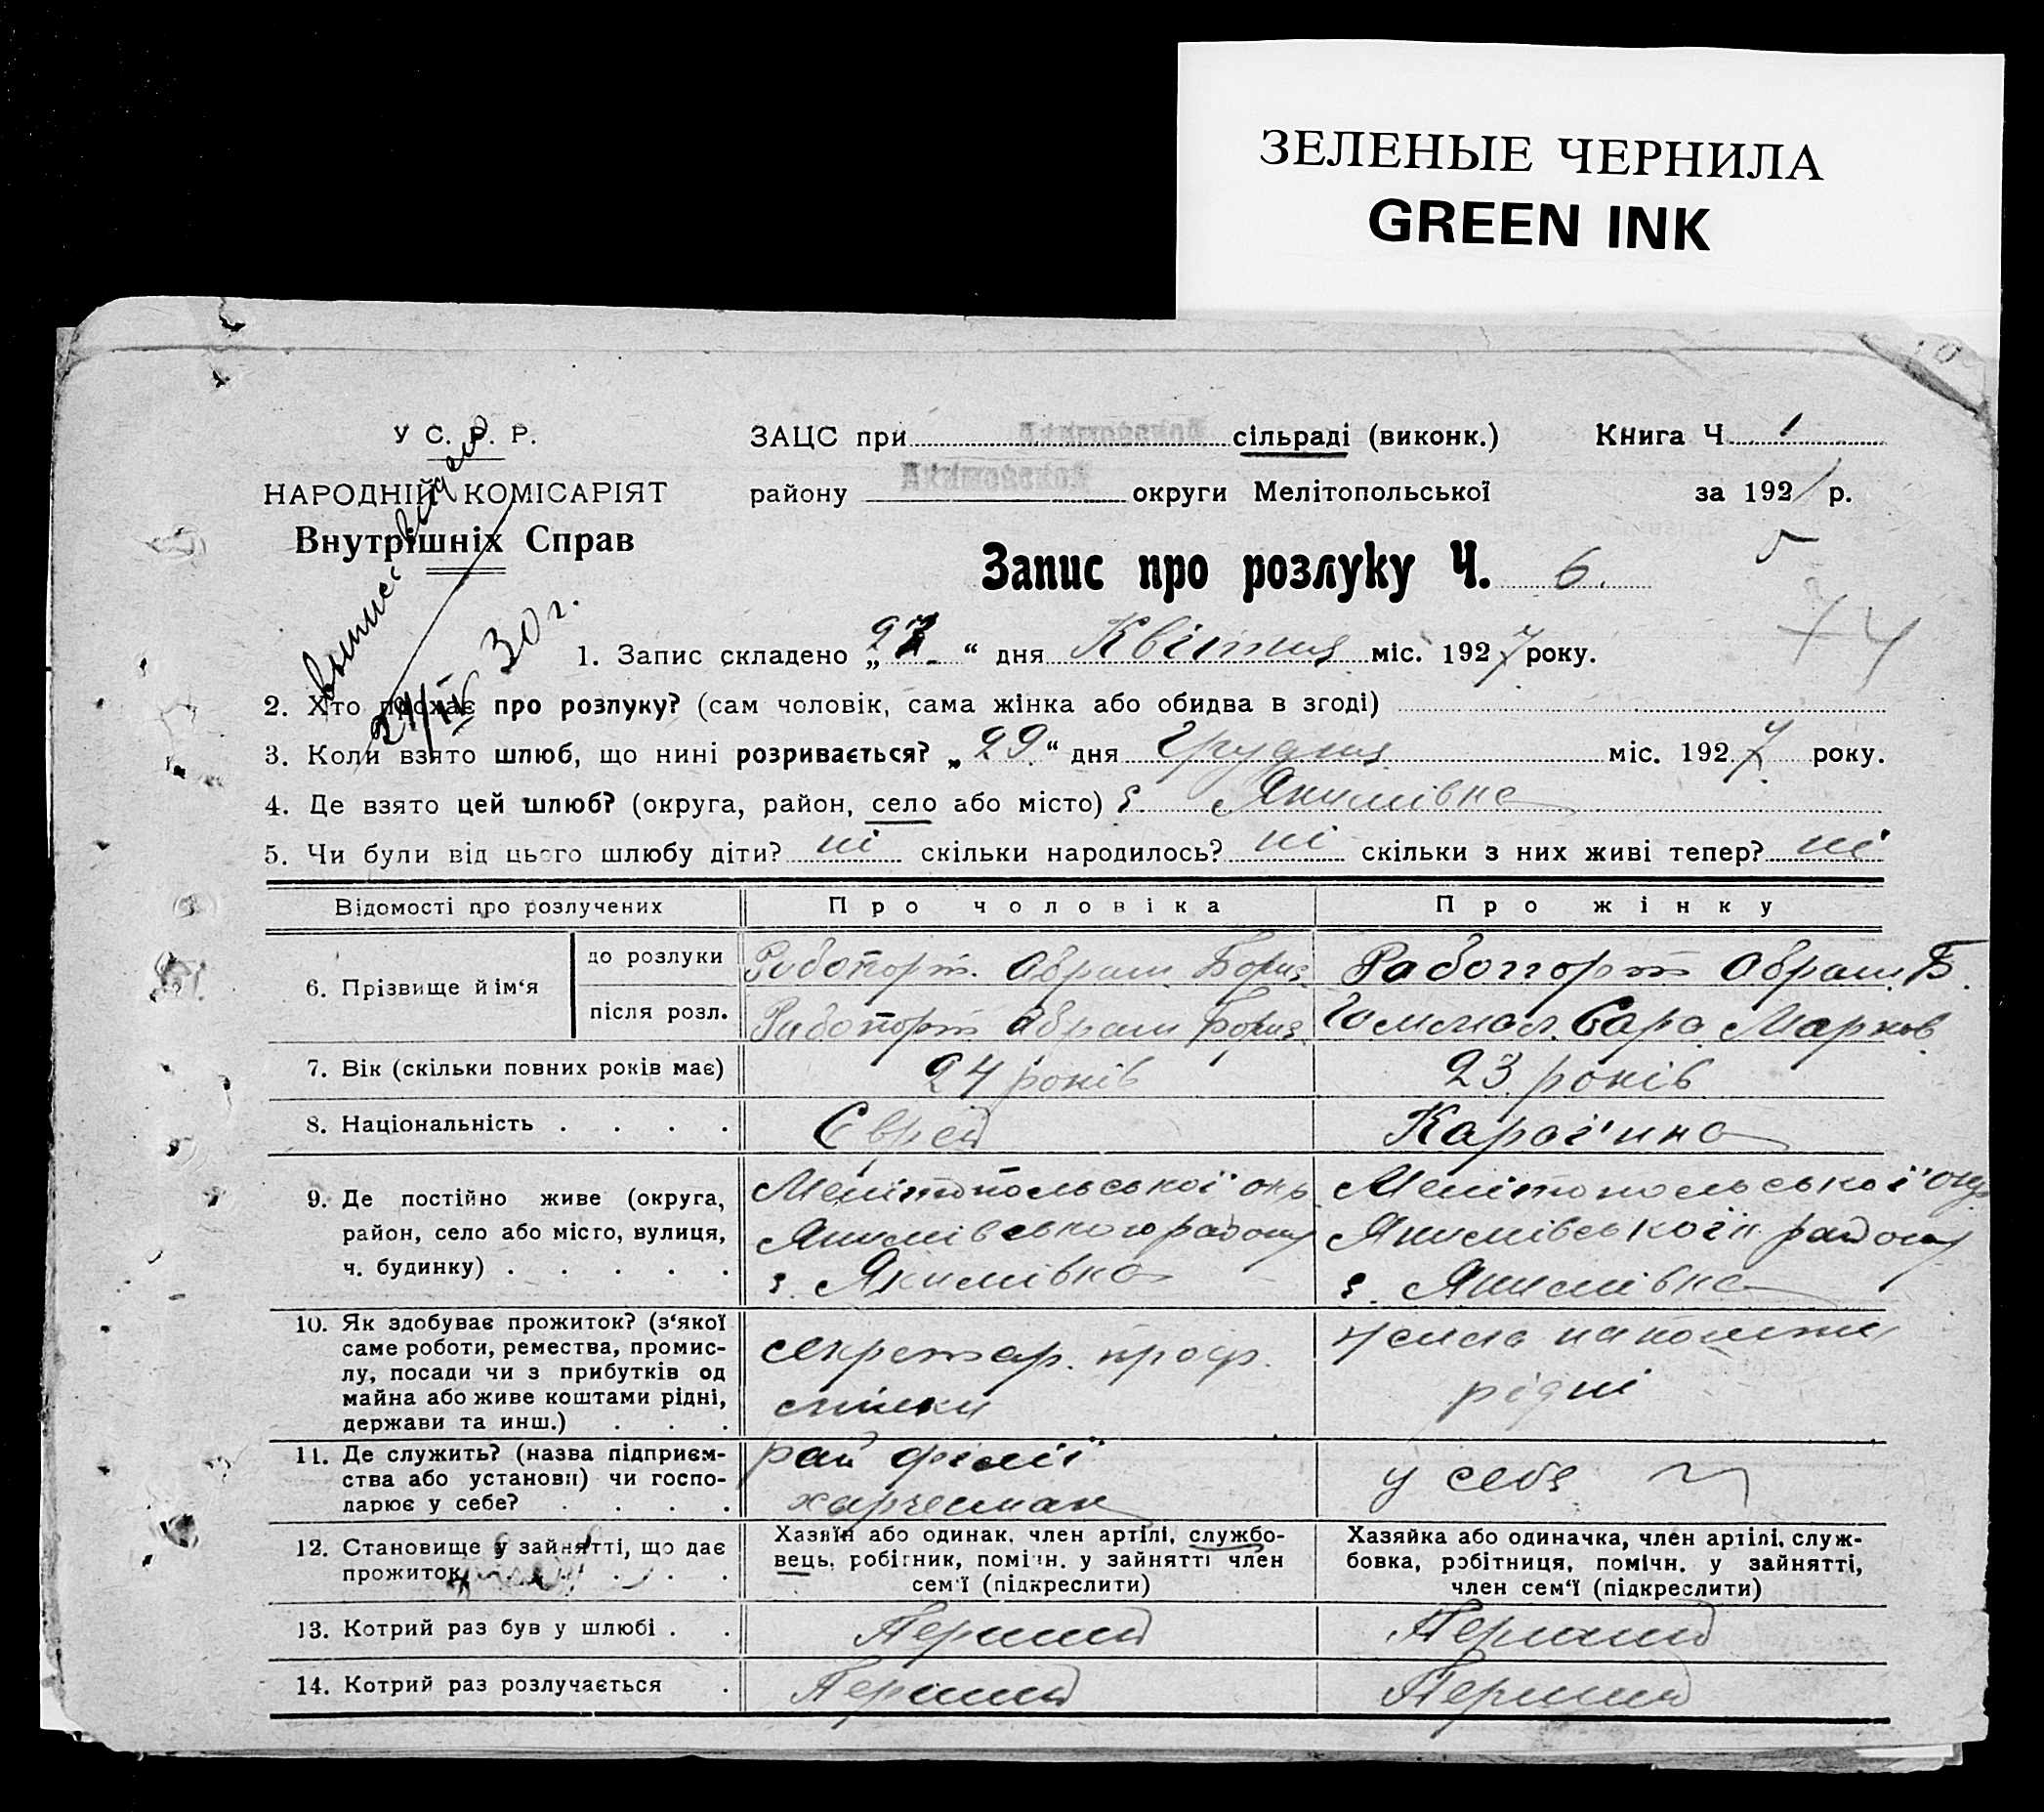 ЗЕЛЕНЫЕ ЧЕРНИЛА
GREEN INK
У С. Р. Р.
НАРОДНІЙ КОМІСАРІЯТ
Внутрішніх Справ
30 г.
ЗАЦС при Акимовской сільраді (виконк.) Книга Ч. 1
району Акимовской округи Мелітопольської за 192 р.
Запис про розлуку Ч. 6.
74
1. Запис складено „27“ дня Квітня міс. 1927 року.
2. Хто прохає про розлуку? (сам чоловік, сама жінка або обидва в згоді)
3. Коли взято шлюб, що нині розривається? „29“ дня Грудня міс. 1927 року.
4. Де взято цей шлюб? (округа, район, село або місто) с. Якимівка
5. Чи були від цього шлюбу діти? ні скільки народилось? ні скільки з них живі тепер? ні
Відомості про розлучених Про чоловіка Про жінку
6. Прізвище й ім‘я
до розлуки Рабопорт Абрам Борис. Рабопорт Абрам. Б.
після розл. Рабопорт Абрам Борис. Сара Марков
7. Вік (скільки повних років має) 24 років 23 років
8. Національність . . . . Єврей Караї'мка
9. Де постійно живе (округа, район, село або місто, вулиця, ч. будинку) . . . . .
Мелітопольської окр
Якимівського району
с. Якимівка
Мелітопольської окр
Якимівської району
с. Якимівка
10. Як здобуває прожиток? (з‘якої
саме роботи, ремества, промис-
лу, посади чи з прибутків од
майна або живе коштами рідні,
держави та инш.) . . .
секретар. проф.
спілки
рідні
11. Де служить? (назва підприєм-
ства або установи) чи госпо-
дарює у себе? . . . .
рай філії
харчсмак
у себе
12. Становище у зайнятті, що дає
прожиток . . .
Хазяїн або одинак, член артілі, службо-
вець, робітник, помічн. у зайнятті член
сем‘ї (підкреслити)
Хазяйка або одиначка, член артілі, служ-
бовка, робітниця, помічн. у зайнятті,
член сем‘ї (підкреслити)
13. Котрий раз був у шлюбі . . Перший Перший
14. Котрий раз розлучається . Перший Перший